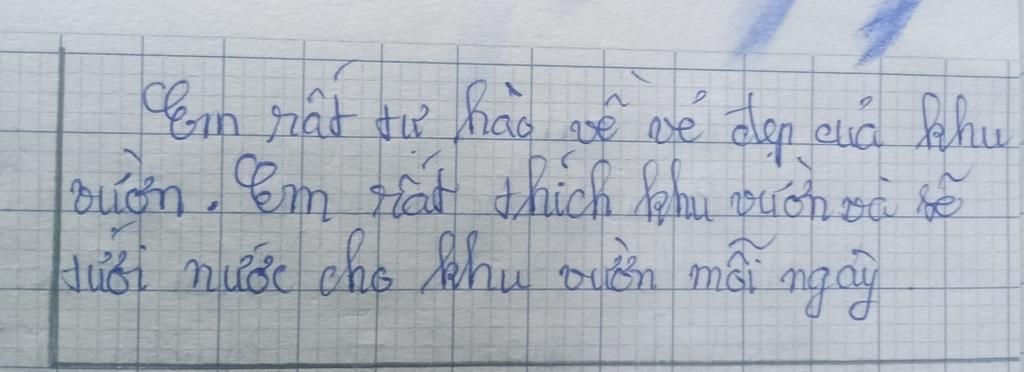 Em rất tự hào về vẻ đẹp của khu
vườn. Em rất thích khu vườn và sẽ
tưới nước cho khu vườn mỗi ngày